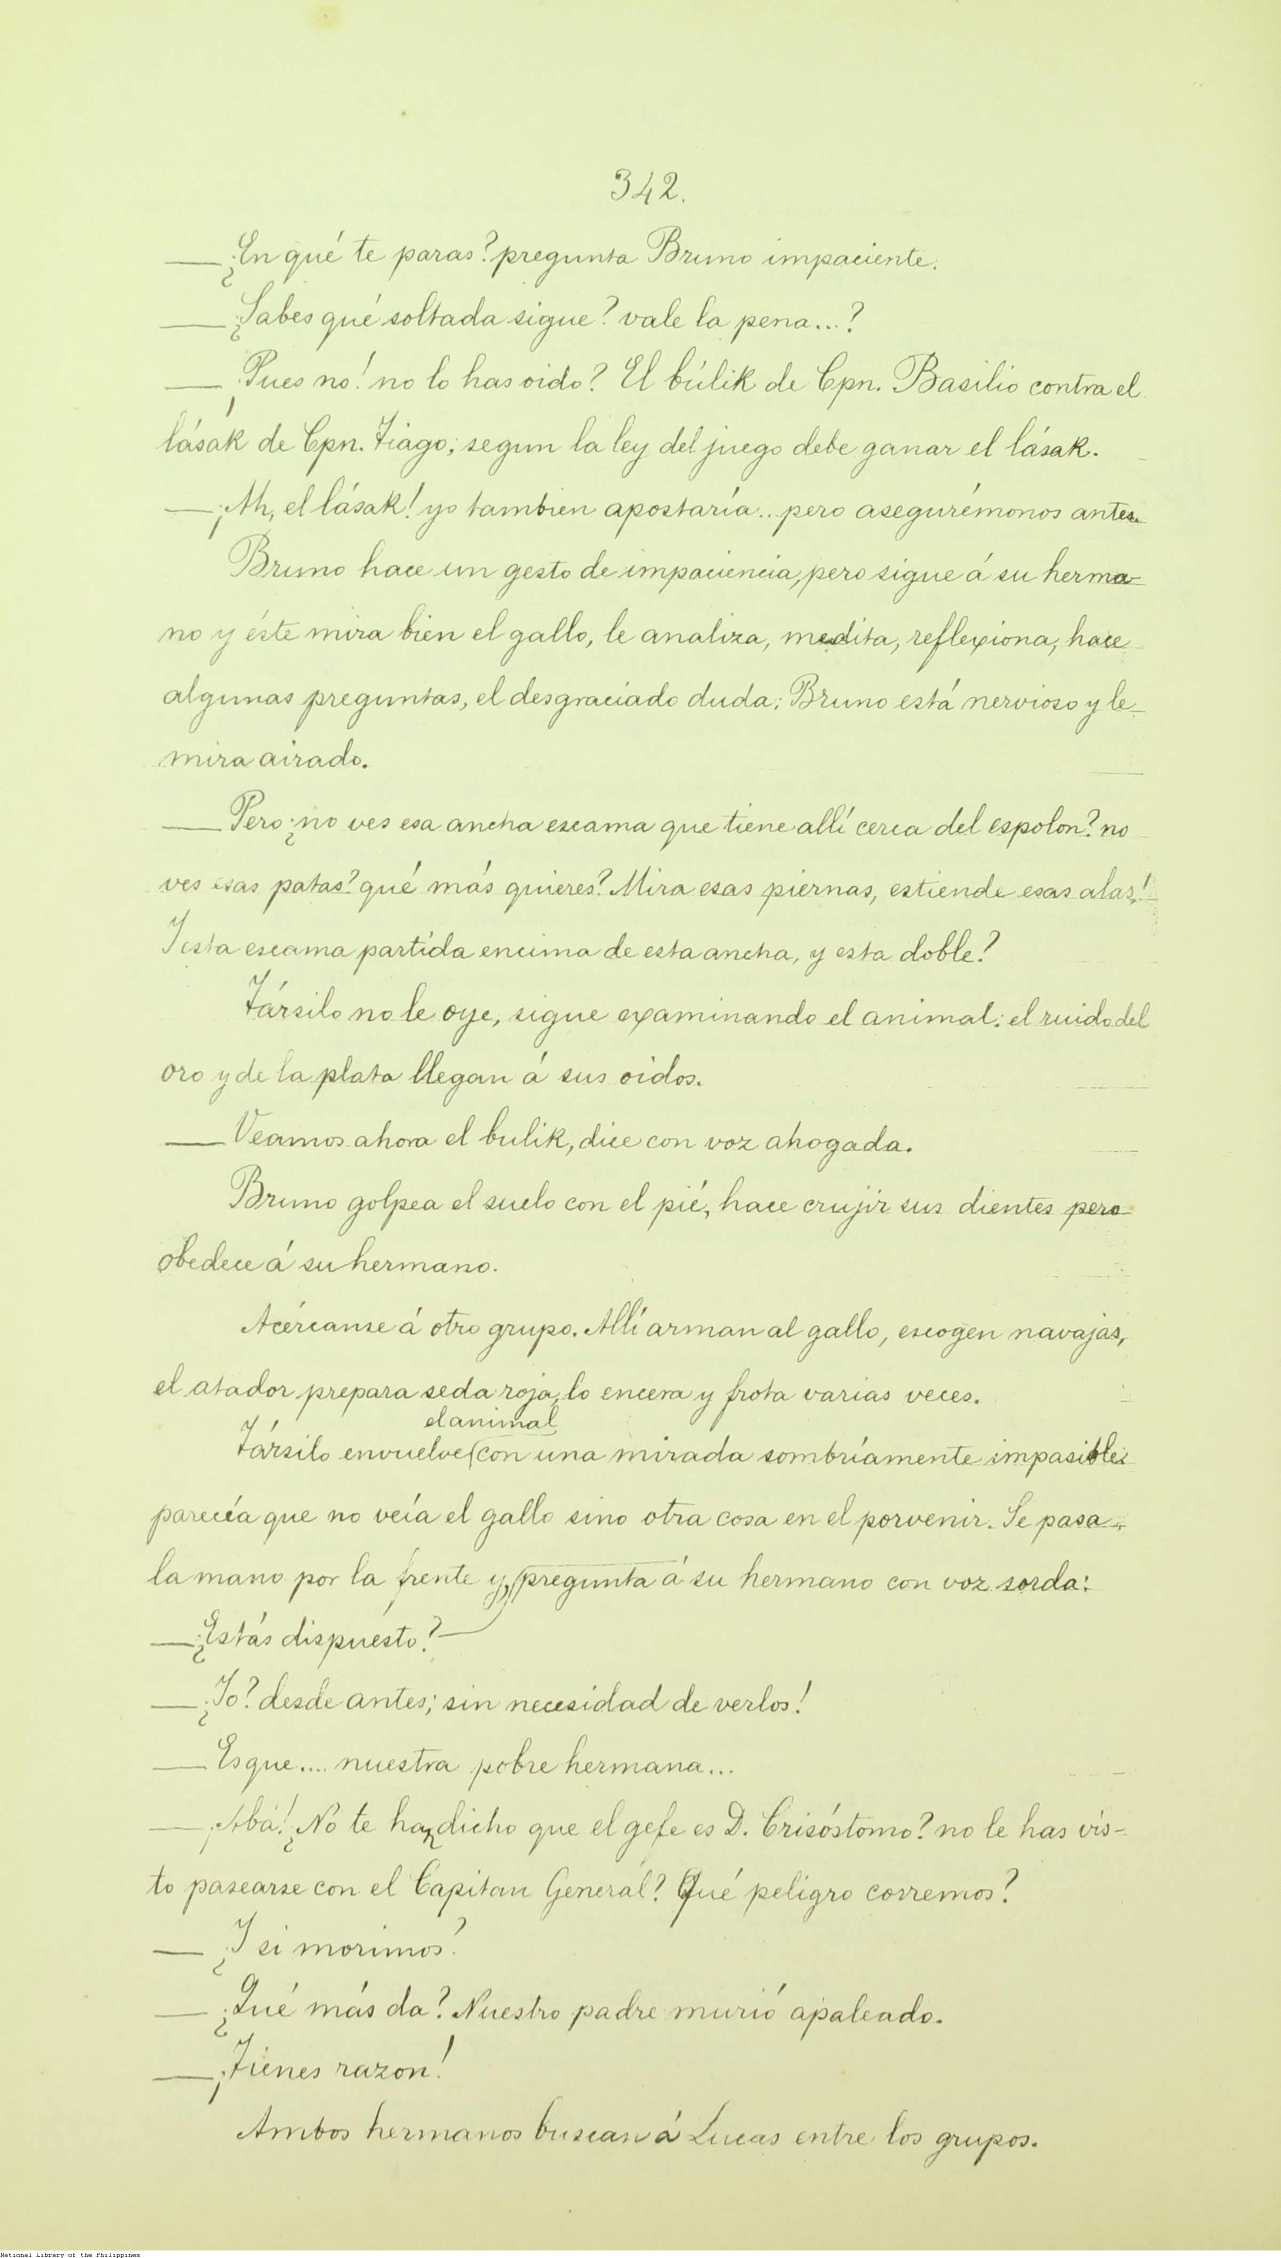 342.
—¿En qué te paras? pregunta Bruno impaciente.
—¿Sabes qué soltada sigue? vale la pena...?
—¡Pues no! no lo has oido? El búlik de Cpn. Basilio contra el
lásak de Cpn. Tiago; segun la ley del juego debe ganar el lásak.
—¡Ah, el lásak! yo tambien apostaría... pero asegurémonos antes.
Bruno hace un gesto de impaciencia, pero sigue á su herma-
no y éste mira bien el gallo, le analiza, medita, reflexiona, hace
algunas preguntas, el desgraciado duda; Bruno está nervioso y le
mira airado.
—Pero ¿no ves esa ancha escama que tiene allí cerca del espolon? no
ves esas patas? qué más quieres? Mira esas piernas, estiende esas alas!
Y esta escama partida encima de esta ancha, y esta doble?
Társilo no le oye, sigue examinando el animal; el ruido del
oro y de la plata llegan á sus oidos.
—Veamos ahora el bulik, dice con voz ahogada.
Bruno golpea el suelo con el pié, hace crujir sus dientes pero
obedece á su hermano.
Acércanse á otro grupo. Allí arman al gallo, escogen navajas,
el atador prepara seda roja, lo encera y frota varias veces.
el animal
Társilo envuelve con una mirada sombríamente impasible:
parecía que no veía el gallo sino otra cosa en el porvenir. Se pasa
la mano por la frente y, pregunta á su hermano con voz sorda:
—¿Estás dispuesto?
—¿Yo? desde antes; sin necesidad de verlos!
—Es que.... nuestra pobre hermana...
—¡Abá! ¿No te han dicho que el gefe es D. Crisóstomo? no le has vis-
to pasearse con el Capitan General? Qué peligro corremos?
—¿Y si morimos?
—¿Qué más da? Nuestro padre murió apaleado.
—¡Tienes razon!
Ambos hermanos buscan á Lucas entre los grupos.
National Library of the Philippines